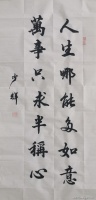 人生哪能多如意
萬事只求半稱心
少輝